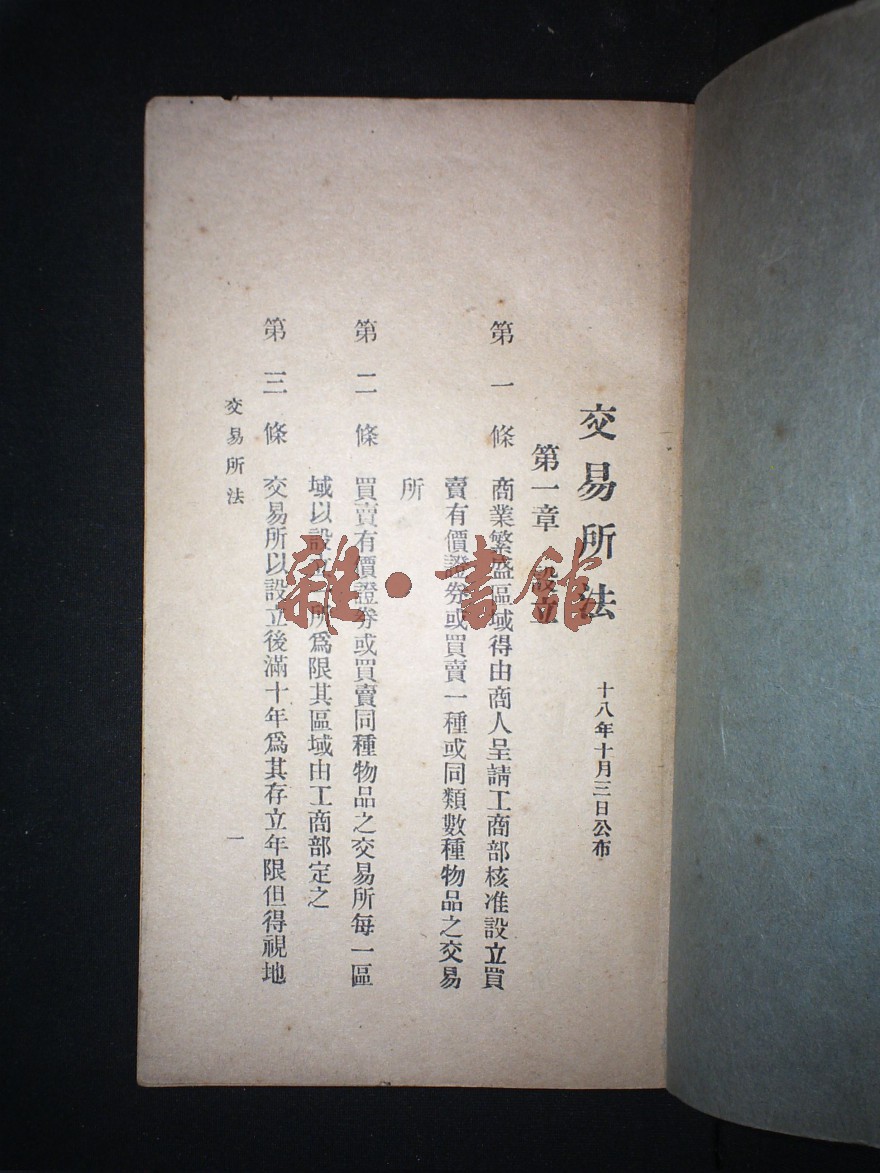 交易所法 十八年十月三日公布
第一章 設立
第一條 商業繁盛區域得由商人呈請工商部核准設立買
賣有價證券或買賣一種或同類數種物品之交易
所
第二條 買賣有價證券或買賣同種物品之交易所每一區
域以設立一所爲限其區域由工商部定之
第三條 交易所以設立後滿十年爲其存立年限但得視地
交易所法 一
雜·書館